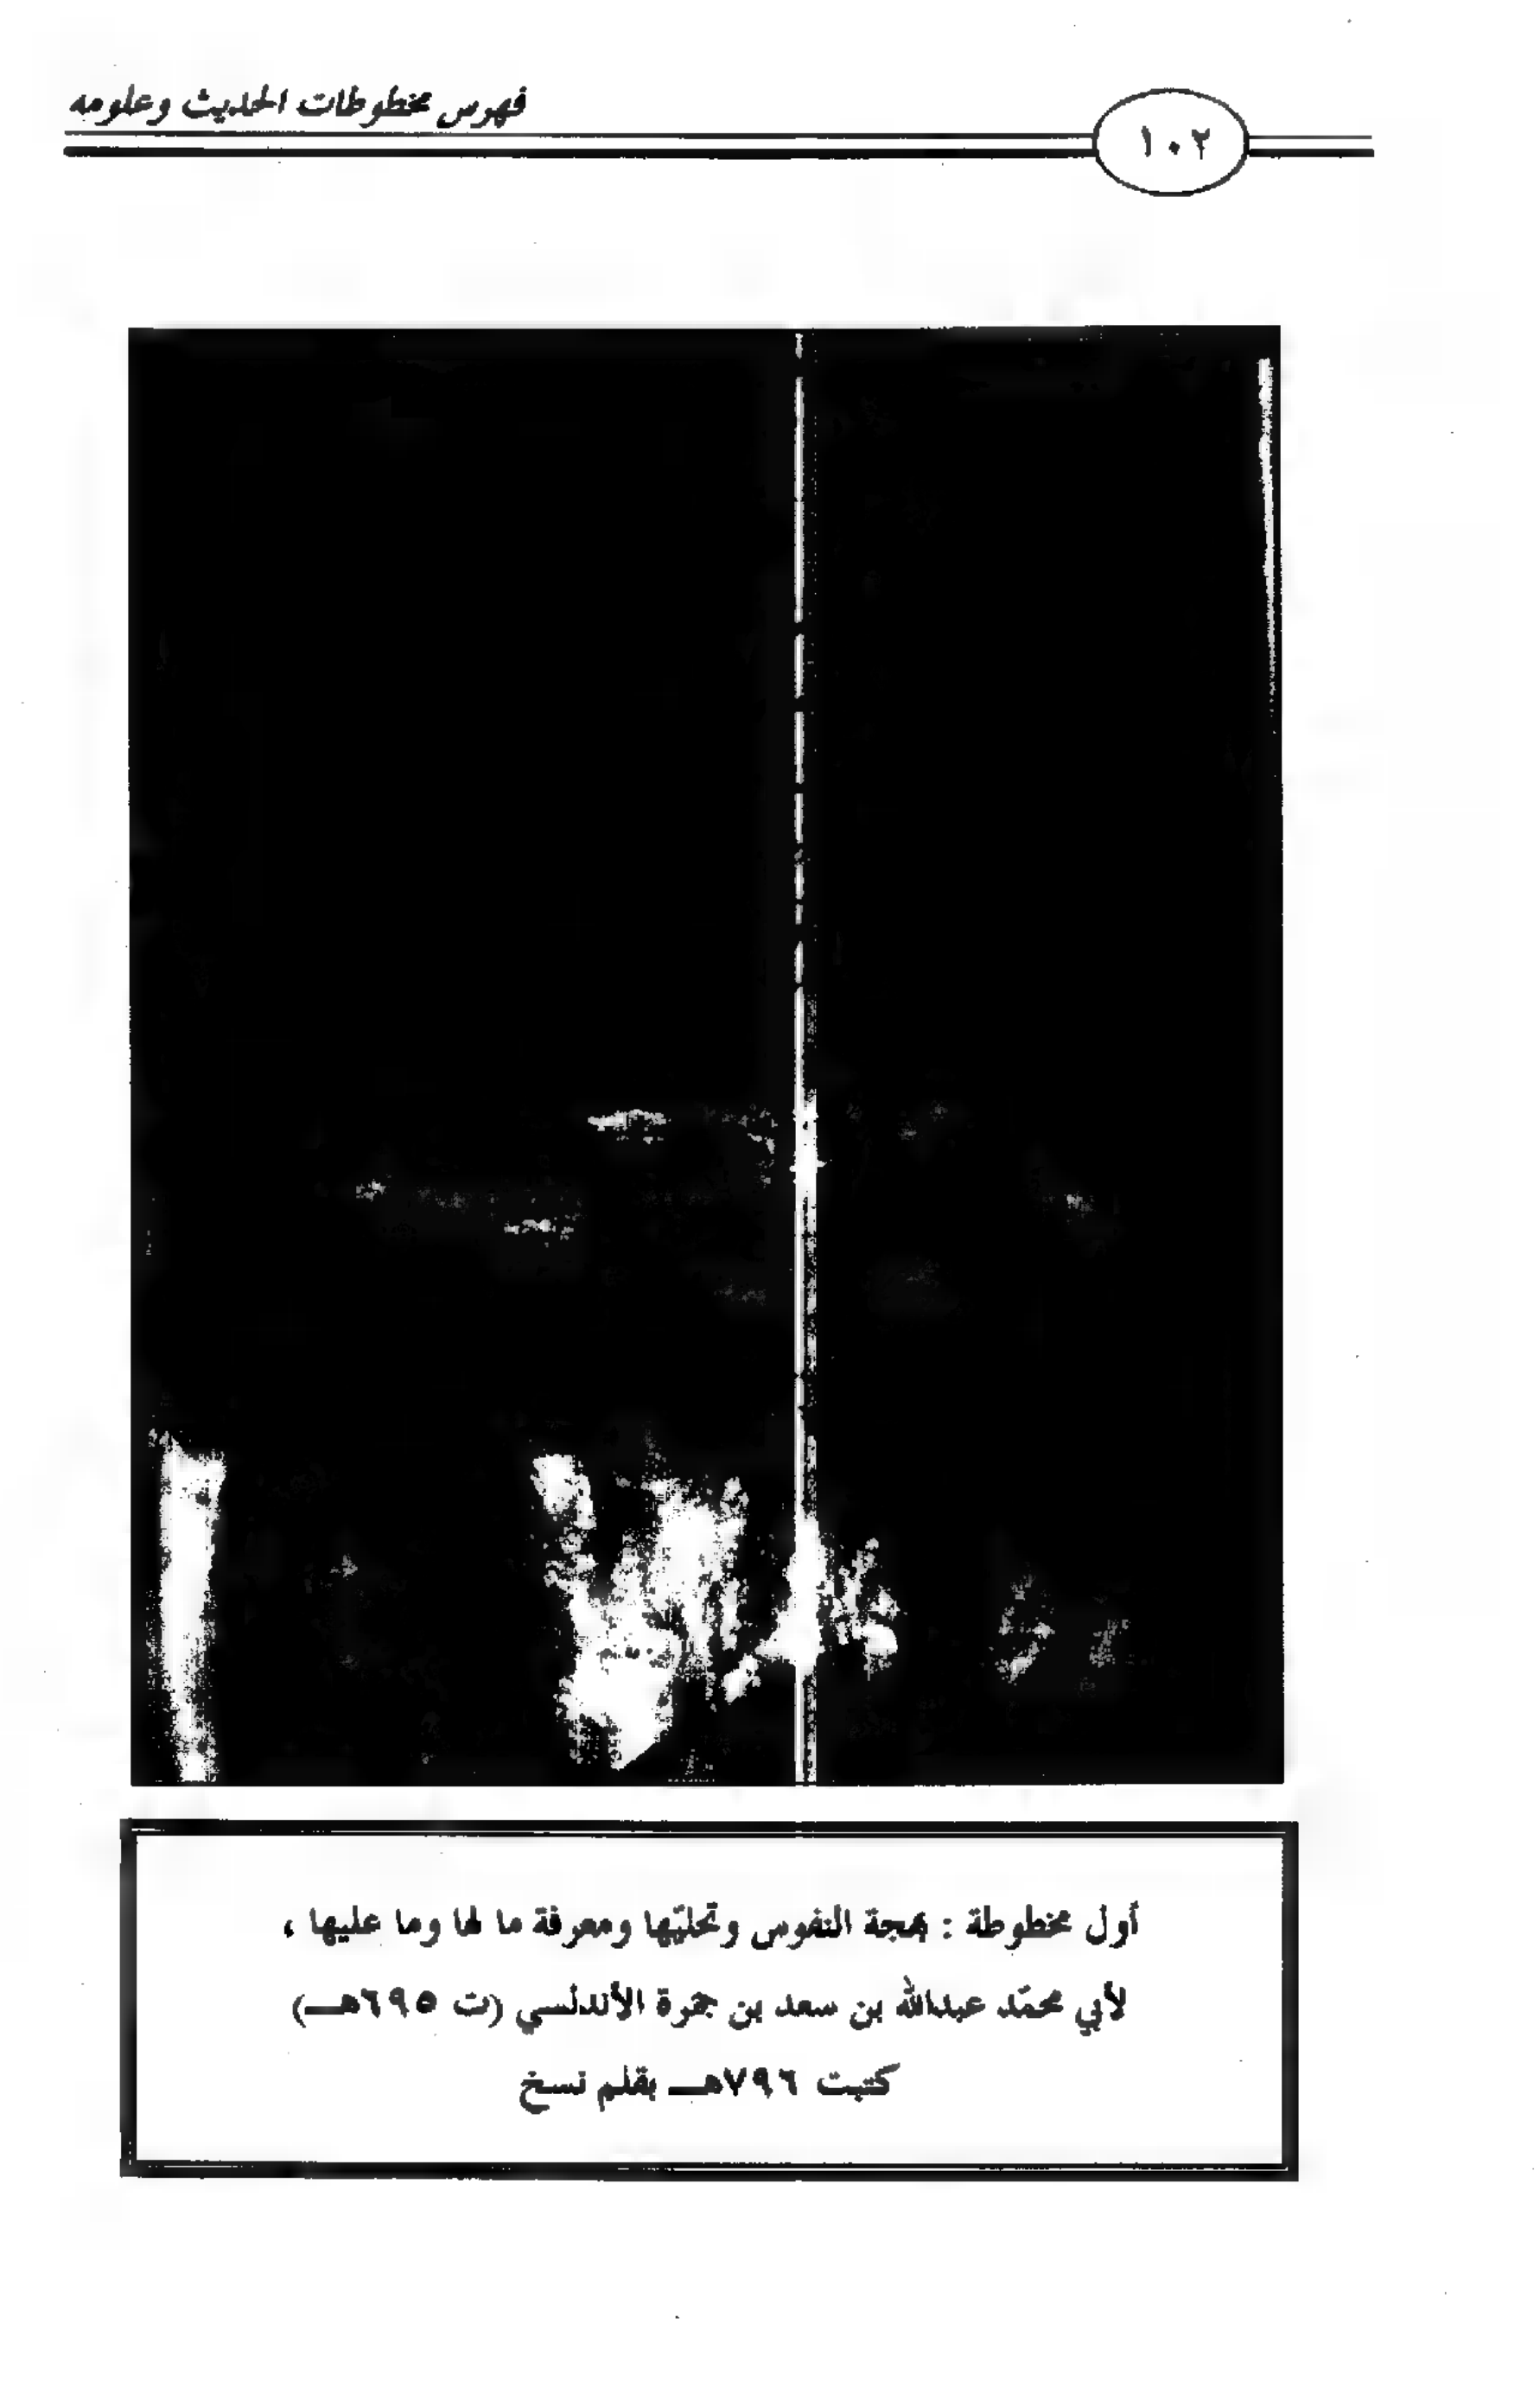 ١٠٢
فهرس مخطوطات الحديث وعلومه
أول مخطوطة : بهجة النفوس وتحليّها ومعرفة ما لها وما عليها ،
لأبي محمّد عبدالله بن سعد بن جمرة الأندلسي (ت ٦٩٥هـــ)
كتبت ٧٩٦هـــ بقلم نسخ